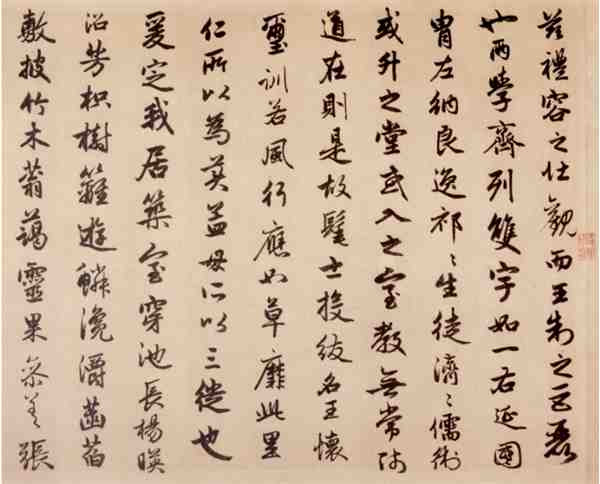 茲禮容之壯觀而王制之巨麗
也兩學齊列雙宇如一右延國
胄左納良逸祁〻生徒濟〻儒術
或升之堂或入之室教無常師
道在則是故髦士投紱名王懷
璽訓若風行應如草靡此里
仁所以為美孟母所以三徙也
爰定我居築室穿池長楊暎
沼芳枳樹籬遊鱗瀺灂菡萏
敷披竹木蓊藹靈果參差張